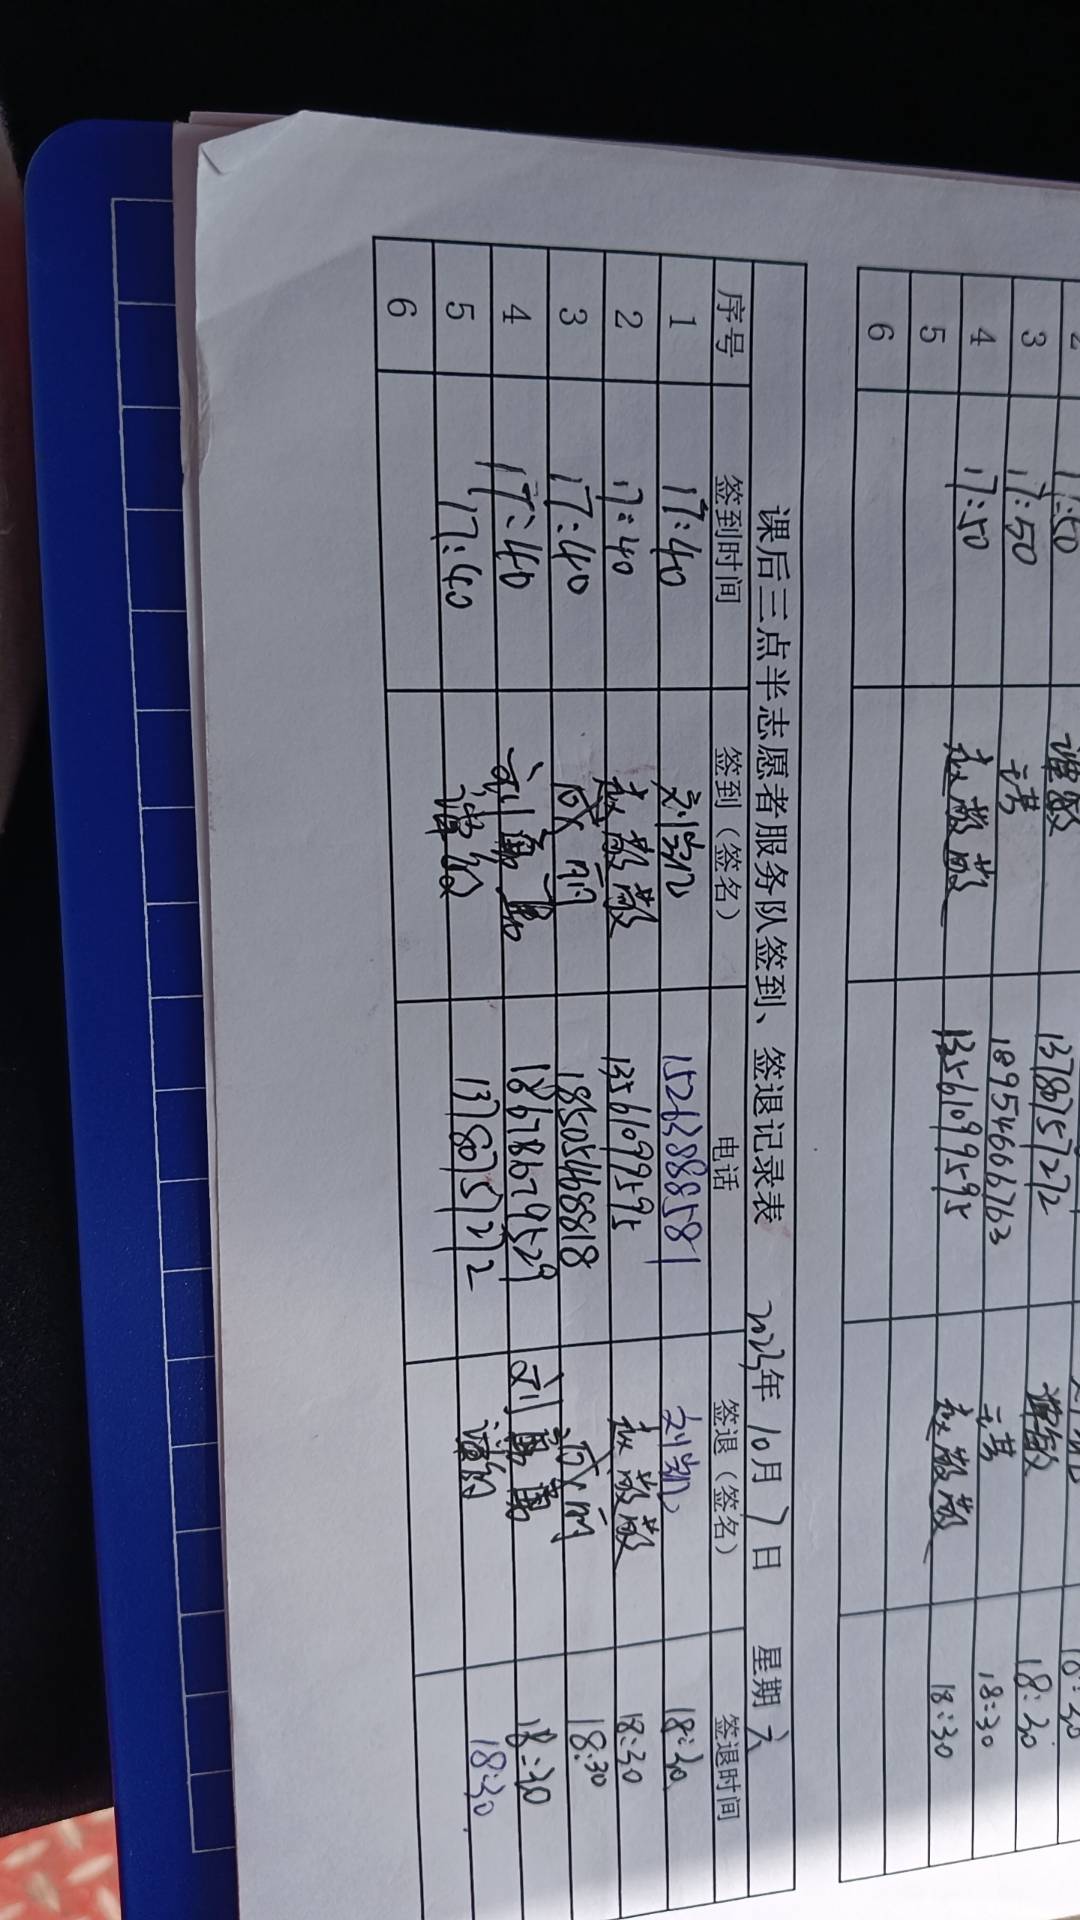 17:50
3 17:50 13780751272 18:30
4 17:50 赵散散 18954666763 18:30
5 13561099595 赵散散 18:30
6
课后三点半志愿者服务队签到、签退记录表 2023年10月7日 星期六
序号 签到时间 签到（签名） 电话 签退（签名） 签退时间
1 17:40 刘凯 15263888581 刘凯 18:30
2 17:40 赵散散 13561099595 赵散散 18:30
3 17:40 18505468818 18:30
4 17:40 刘勇勇 18678679529 刘勇勇 18:30
5 17:40 13780751272 18:30
6